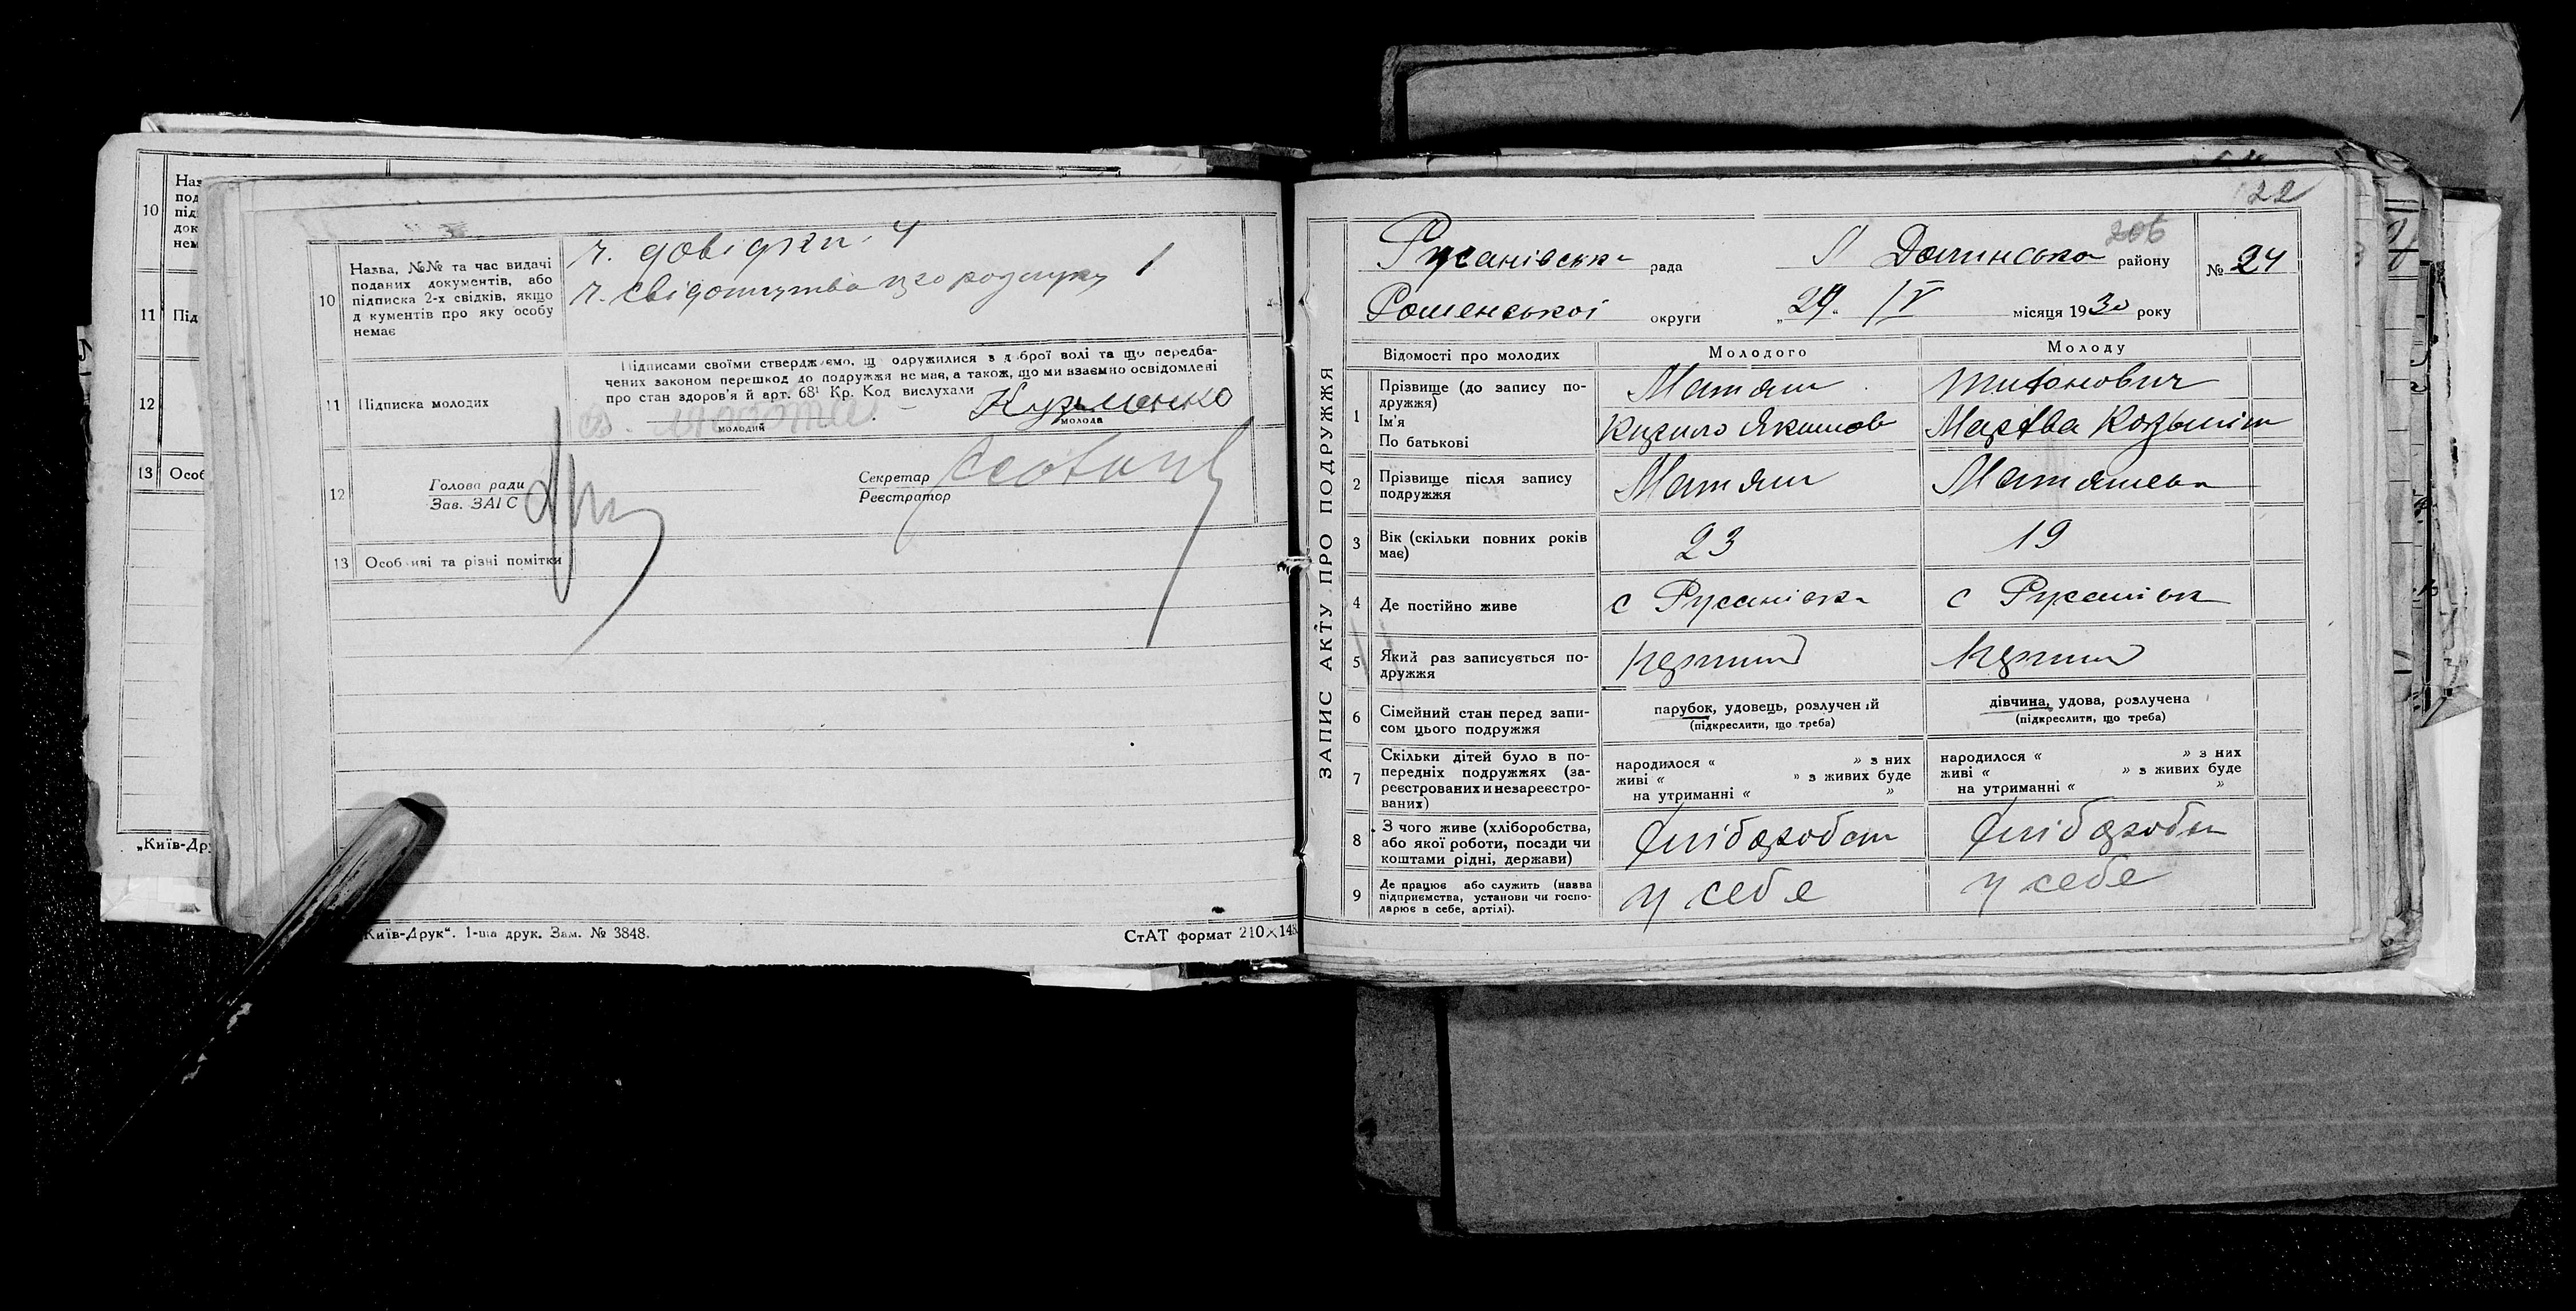 10
Наз
под
під
док
нем
11
Під
12
13
Особ
„Київ-Дру
10
Назва, №№ та час видачі
поданих документів, або
підписка 2-х свідків, якщо
д кументів про яку особу
немає
ч. довідки 4
ч. свідоцтва про розлуку 1
11
Підписка молодих
Підписами своїми стверджуємо, що одружилися з доброї волі та що передба-
чених законом перешкод до подружжя немає, а також, що ми взаємно освідомлені
про стан здоров'я й арт. 68¹ Кр. Код вислухали
Кузьменко
молодий
молода
12
Голова ради
Зав. ЗАГС
Секретар
Реєстратор
13
Особливі та різні помітки
„Київ-Друк“. 1-ша друк. Зам. № 3848.
СтАТ формат 210×148
22
206
ЗАПИС АКТУ ПРО ПОДРУЖЖЯ
Русанівська рада Долинська району
№ 24
Роменської округи „29“ IV місяця 1930 року
Відомості про молодих
Молодого
Молоду
1
Прізвище (до запису по-
дружжя)
Ім'я
По батькові
Матяш
Кирило Якимов
2
Прізвище після запису
подружжя
Матяш
3
Вік (скільки повних років
має)
23
19
4
Де постійно живе
с Русанівка
с Русанівк
5
Який раз записується по-
дружжя
перший
перший
6
Сімейний стан перед запи-
сом цього подружжя
парубок, удовець, розлучений
(підкреслити, що треба)
дівчина, удова, розлучена
(підкреслити, що треба)
7
Скільки дітей було в по-
передніх подружжях (за-
реєстрованих и незареєстро-
ваних)
народилося « » з них
живі « » з живих буде
на утриманні « »
народилося « » з них
живі « » з живих буде
на утриманні « »
8
З чого живе (хліборобства,
або якої роботи, посади чи
коштами рідні, держави)
хлібороб
хлібороб
9
Де працює або служить (назва
підприємства, установи чи госпо-
дарює в себе, артілі).
у себе
у себе